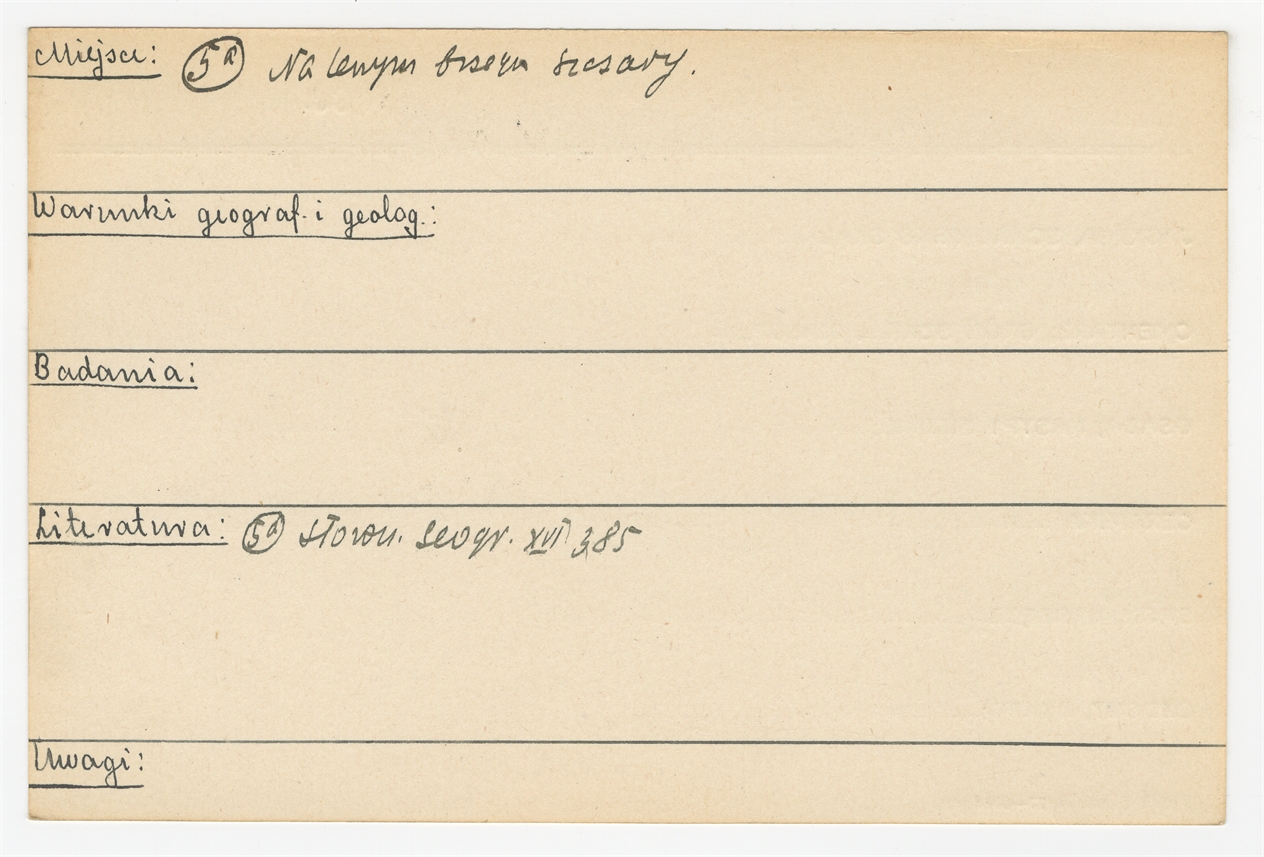 Miejsce: 5a Na lewym brzegu Szczary.
Warunki geograf. i geolog.:
Badania:
Literatura: 5a Słown. Geogr. XVI 385
Uwagi: